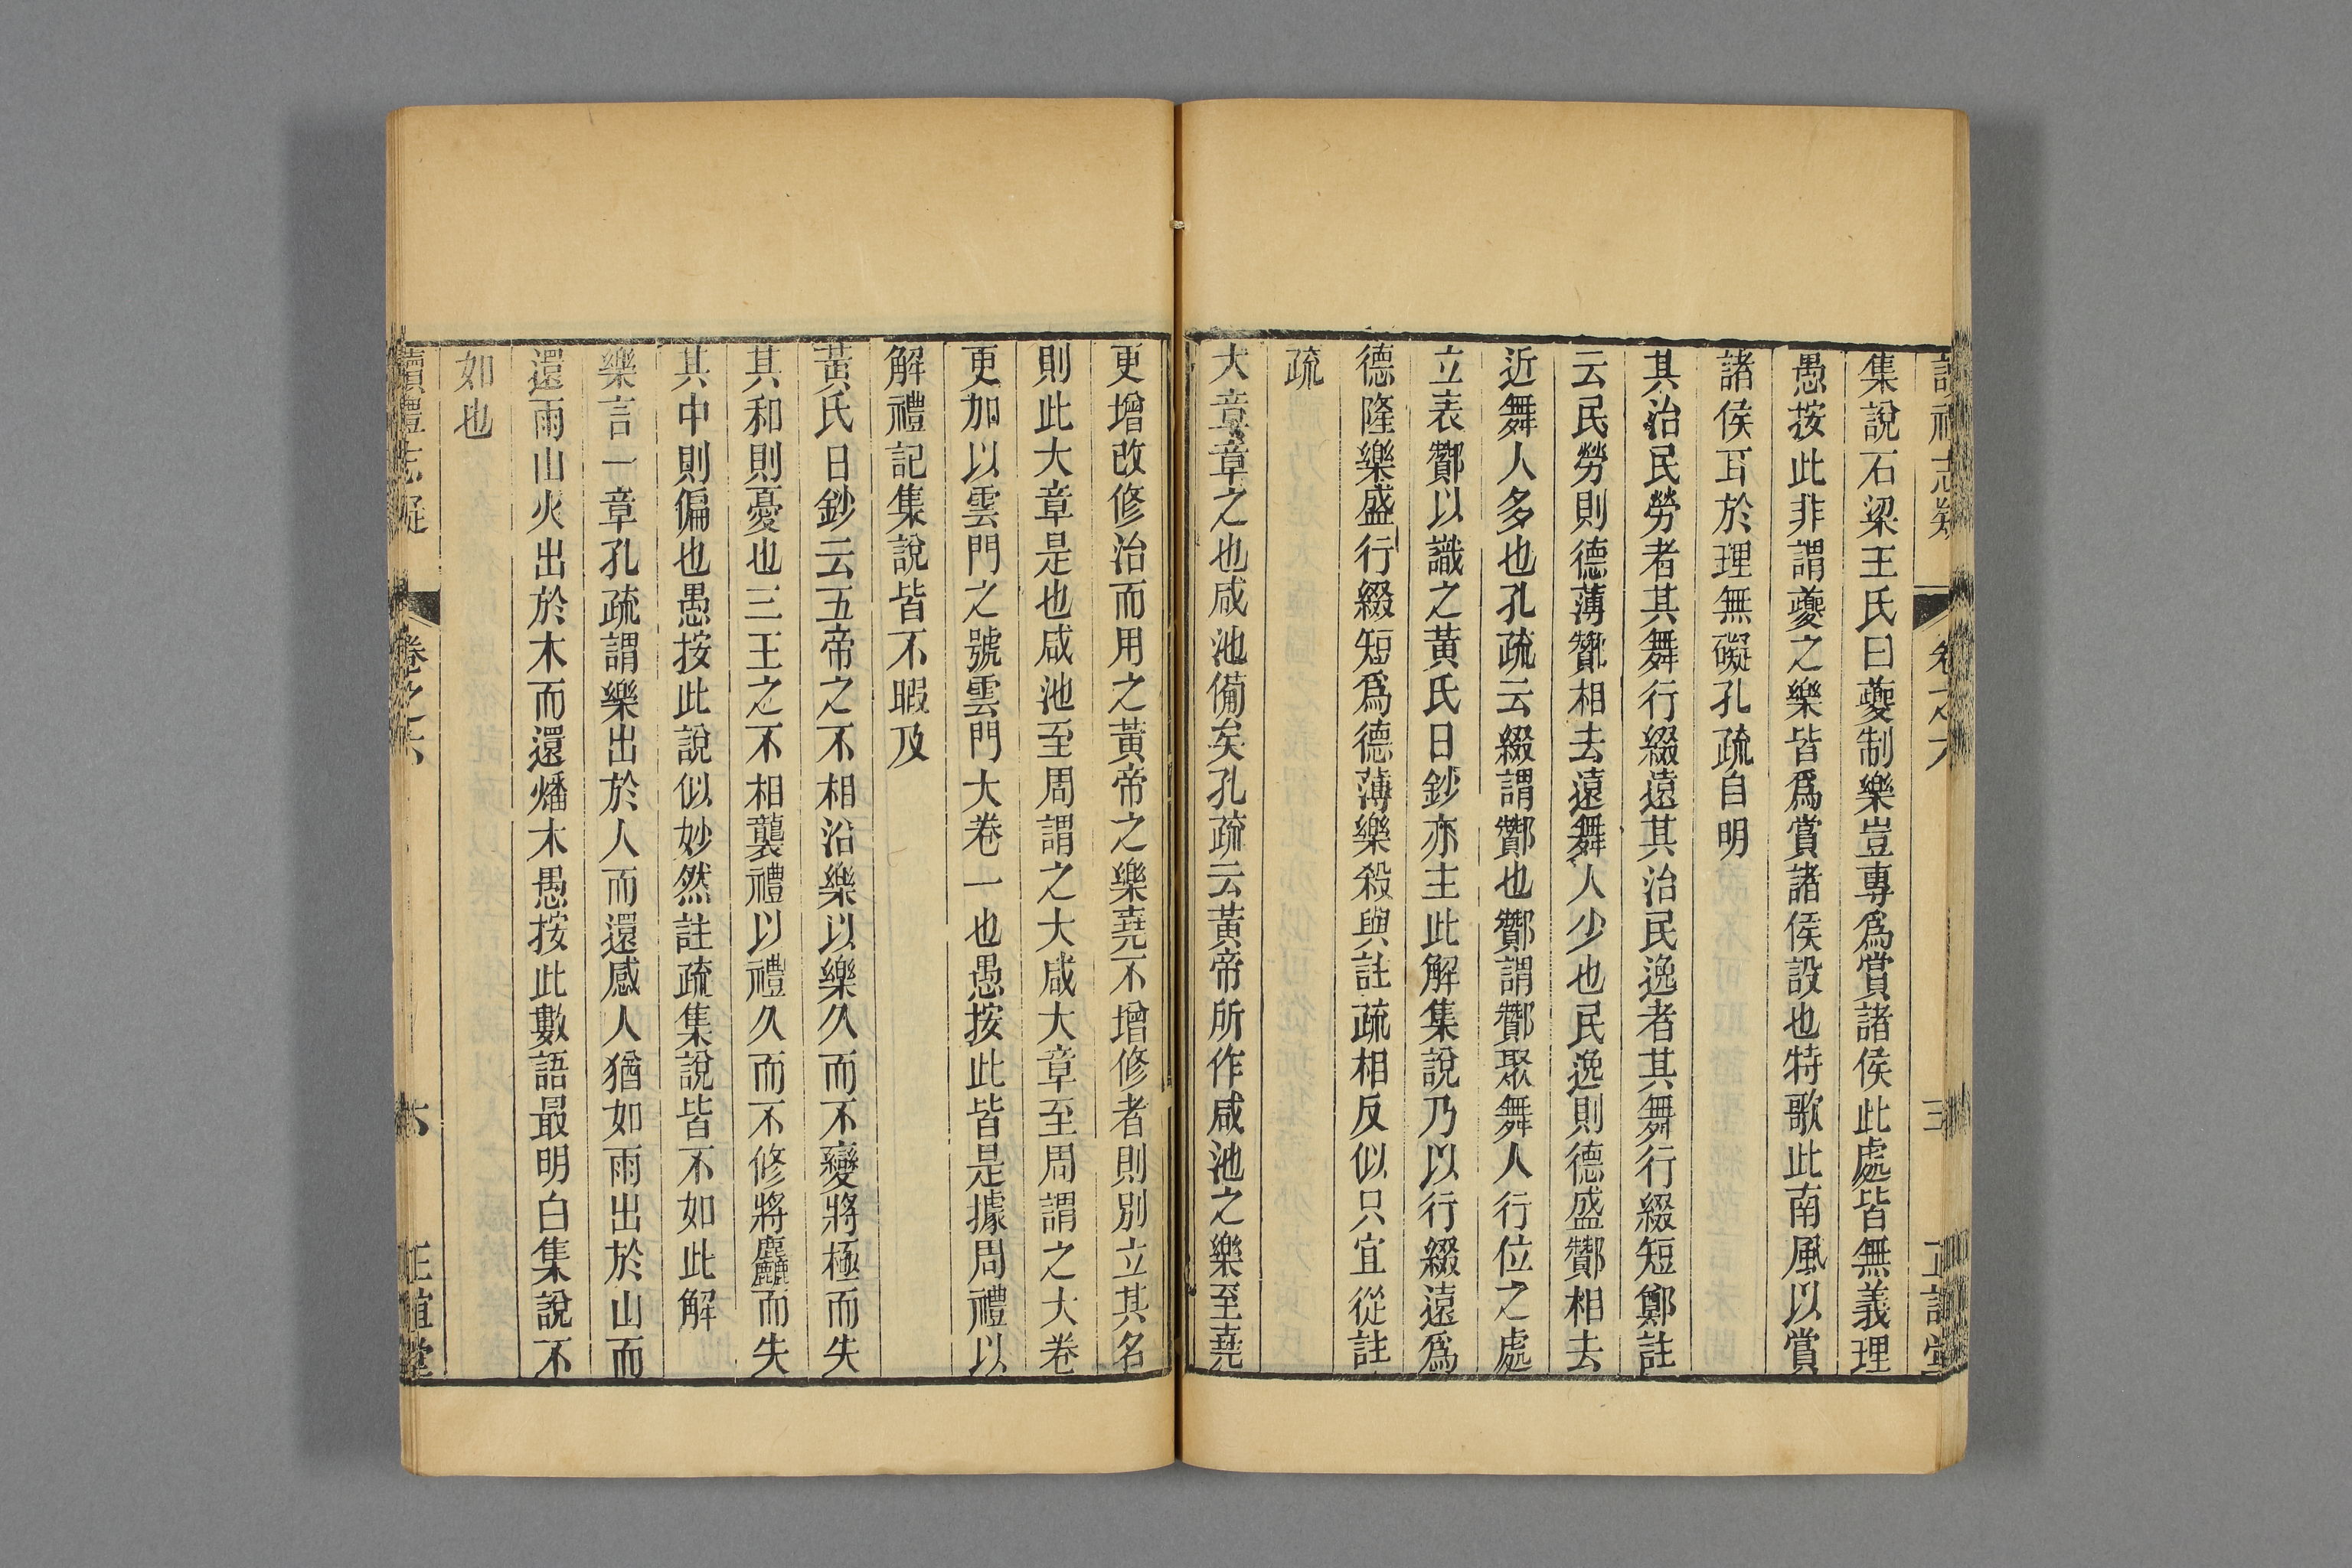 讀禮志疑 卷之六
集說石梁王氏曰夔制樂豈專爲賞諸侯此處皆無義理
愚按此非謂夔之樂皆爲賞諸侯設也特歌此南風以賞
諸侯耳於理無礙孔疏自明
其治民勞者其舞行綴遠其治民逸者其舞行綴短鄭註
云民勞則德薄酇相去遠舞人少也民逸則德盛酇相去
近舞人多也孔疏云綴謂酇也酇謂酇聚舞人行位之處
立表酇以識之黃氏日鈔亦主此解集說乃以行綴遠爲
德隆樂盛行綴短爲德薄樂殺與註疏相反似只宜從註
疏
大章章之也咸池備矣孔疏云黃帝所作咸池之樂至堯
更增改修治而用之黃帝之樂堯不增修者則別立其名
則此大章是也咸池至周謂之大咸大章至周謂之大卷
更加以雲門之號雲門大卷一也愚按此皆是據周禮以
解禮記集說皆不暇及
黃氏日鈔云五帝之不相沿樂以樂久而不變將極而失
其和則憂也三王之不相襲禮以禮久而不修將麤而失
其中則偏也愚按此說似妙然註疏集說皆不如此解
樂言一章孔疏謂樂出於人而還感人猶如雨出於山而
還雨山火出於木而還燔木愚按此數語最明白集說不
如也
讀禮志疑 卷之六 六 正誼堂